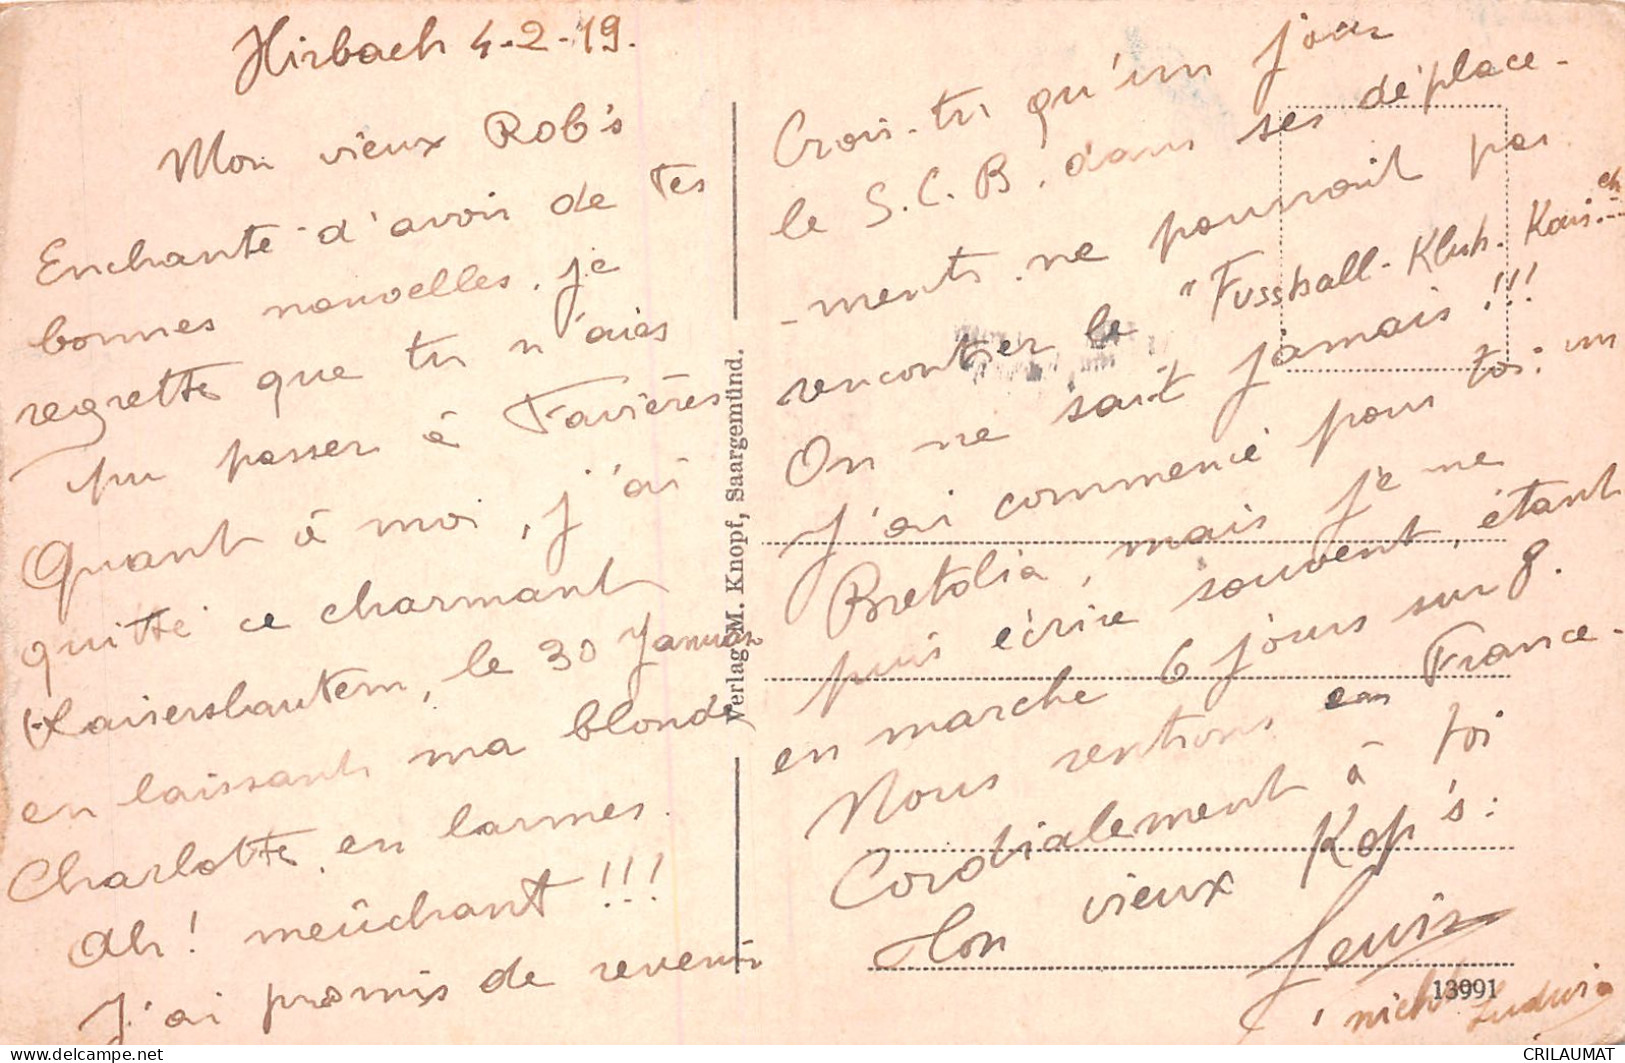 Hirbach 4-2-19.
Mon vieux Rob's
Enchanté d'avoir de tes
bonnes nouvelles, je
regrette que tu n'aies
pu passer à Favières
Quant à moi, j'ai
quitté ce charmant
Kaiserslautern, le 30 Januar
en laissant ma blonde
Charlotte en larmes.
Ah! meûchant!!!
J'ai promis de revenir
Verlag M. Knopf, Saargemünd.
Crois-tu qu'un jour
le S.C.B. dans ses déplace-
-ments ne pourrait pas
rencontrer le "Fussball-Klub.
On ne sait jamais!!!
J'ai commencé pour toi: un
Bretolia, mais je ne
puis écrire souvent, étant
en marche 6 jours sur 8.
Nous rentrons en France.
Cordialement à toi
Ton vieux Kop's:
Levis
13991
nicht Ludwig
CRILAUMAT